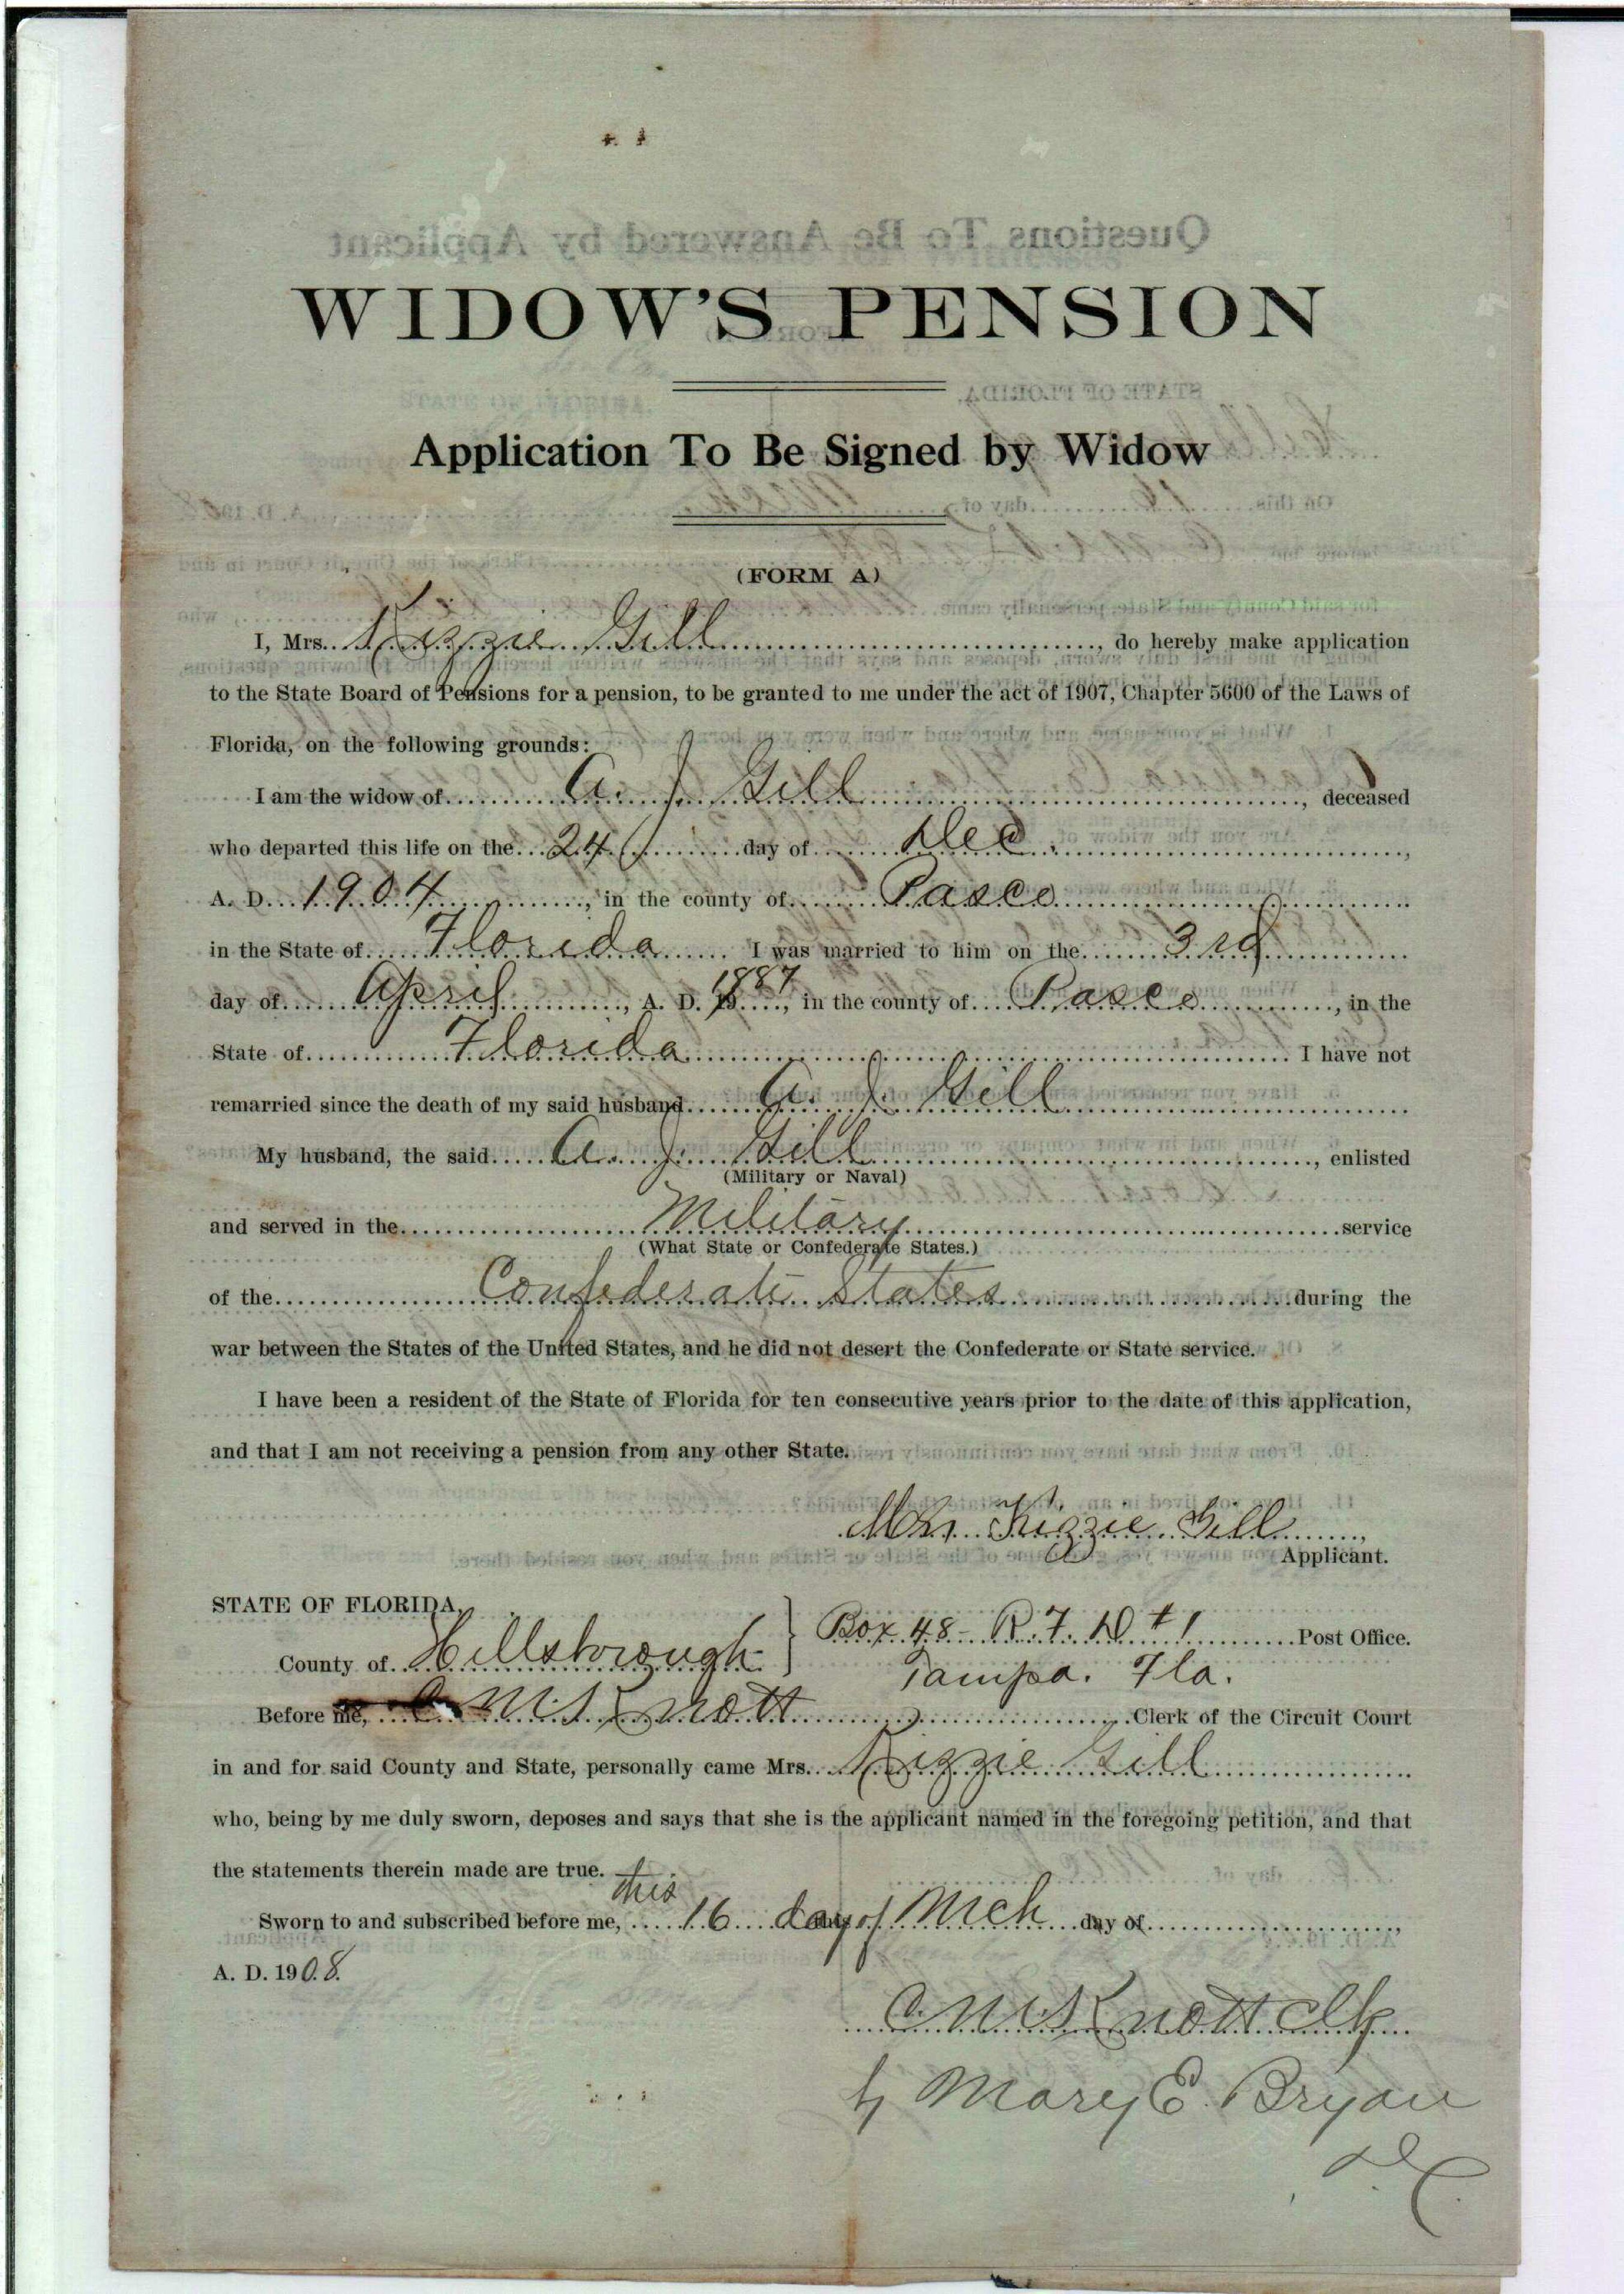 WIDOW'S PENSION
Application To Be Signed by Widow
(FORM A)
I, Mrs. Kizzie Gill, do hereby make application
to the State Board of Pensions for a pension, to be granted to me under the act of 1907, Chapter 5600 of the Laws of
Florida, on the following grounds:
I am the widow of A. J. Gill, deceased
who departed this life on the 24 day of Dec.,
A. D. 1904, in the county of Pasco
in the State of Florida I was married to him on the 3rd
day of April, A. D. 19 1887, in the county of Pasco, in the
State of Florida I have not
remarried since the death of my said husband A. J. Gill
My husband, the said A. J. Gill, enlisted
(Military or Naval)
and served in the Military service
(What State or Confederate States.)
of the Confederate States during the
war between the States of the United States, and he did not desert the Confederate or State service.
I have been a resident of the State of Florida for ten consecutive years prior to the date of this application,
and that I am not receiving a pension from any other State.
Mrs. Kizzie Gill,
Applicant.
STATE OF FLORIDA,
County of Hillsborough } Box 48- R. F. D # 1 Post Office.
Tampa. Fla.
Before me, C M Knott Clerk of the Circuit Court
in and for said County and State, personally came Mrs. Kizzie Gill
who, being by me duly sworn, deposes and says that she is the applicant named in the foregoing petition, and that
the statements therein made are true.
Sworn to and subscribed before me, this 16 day of Mch day of,
A. D. 1908.
C M Knott Clk
by Mary E. Bryan
D C